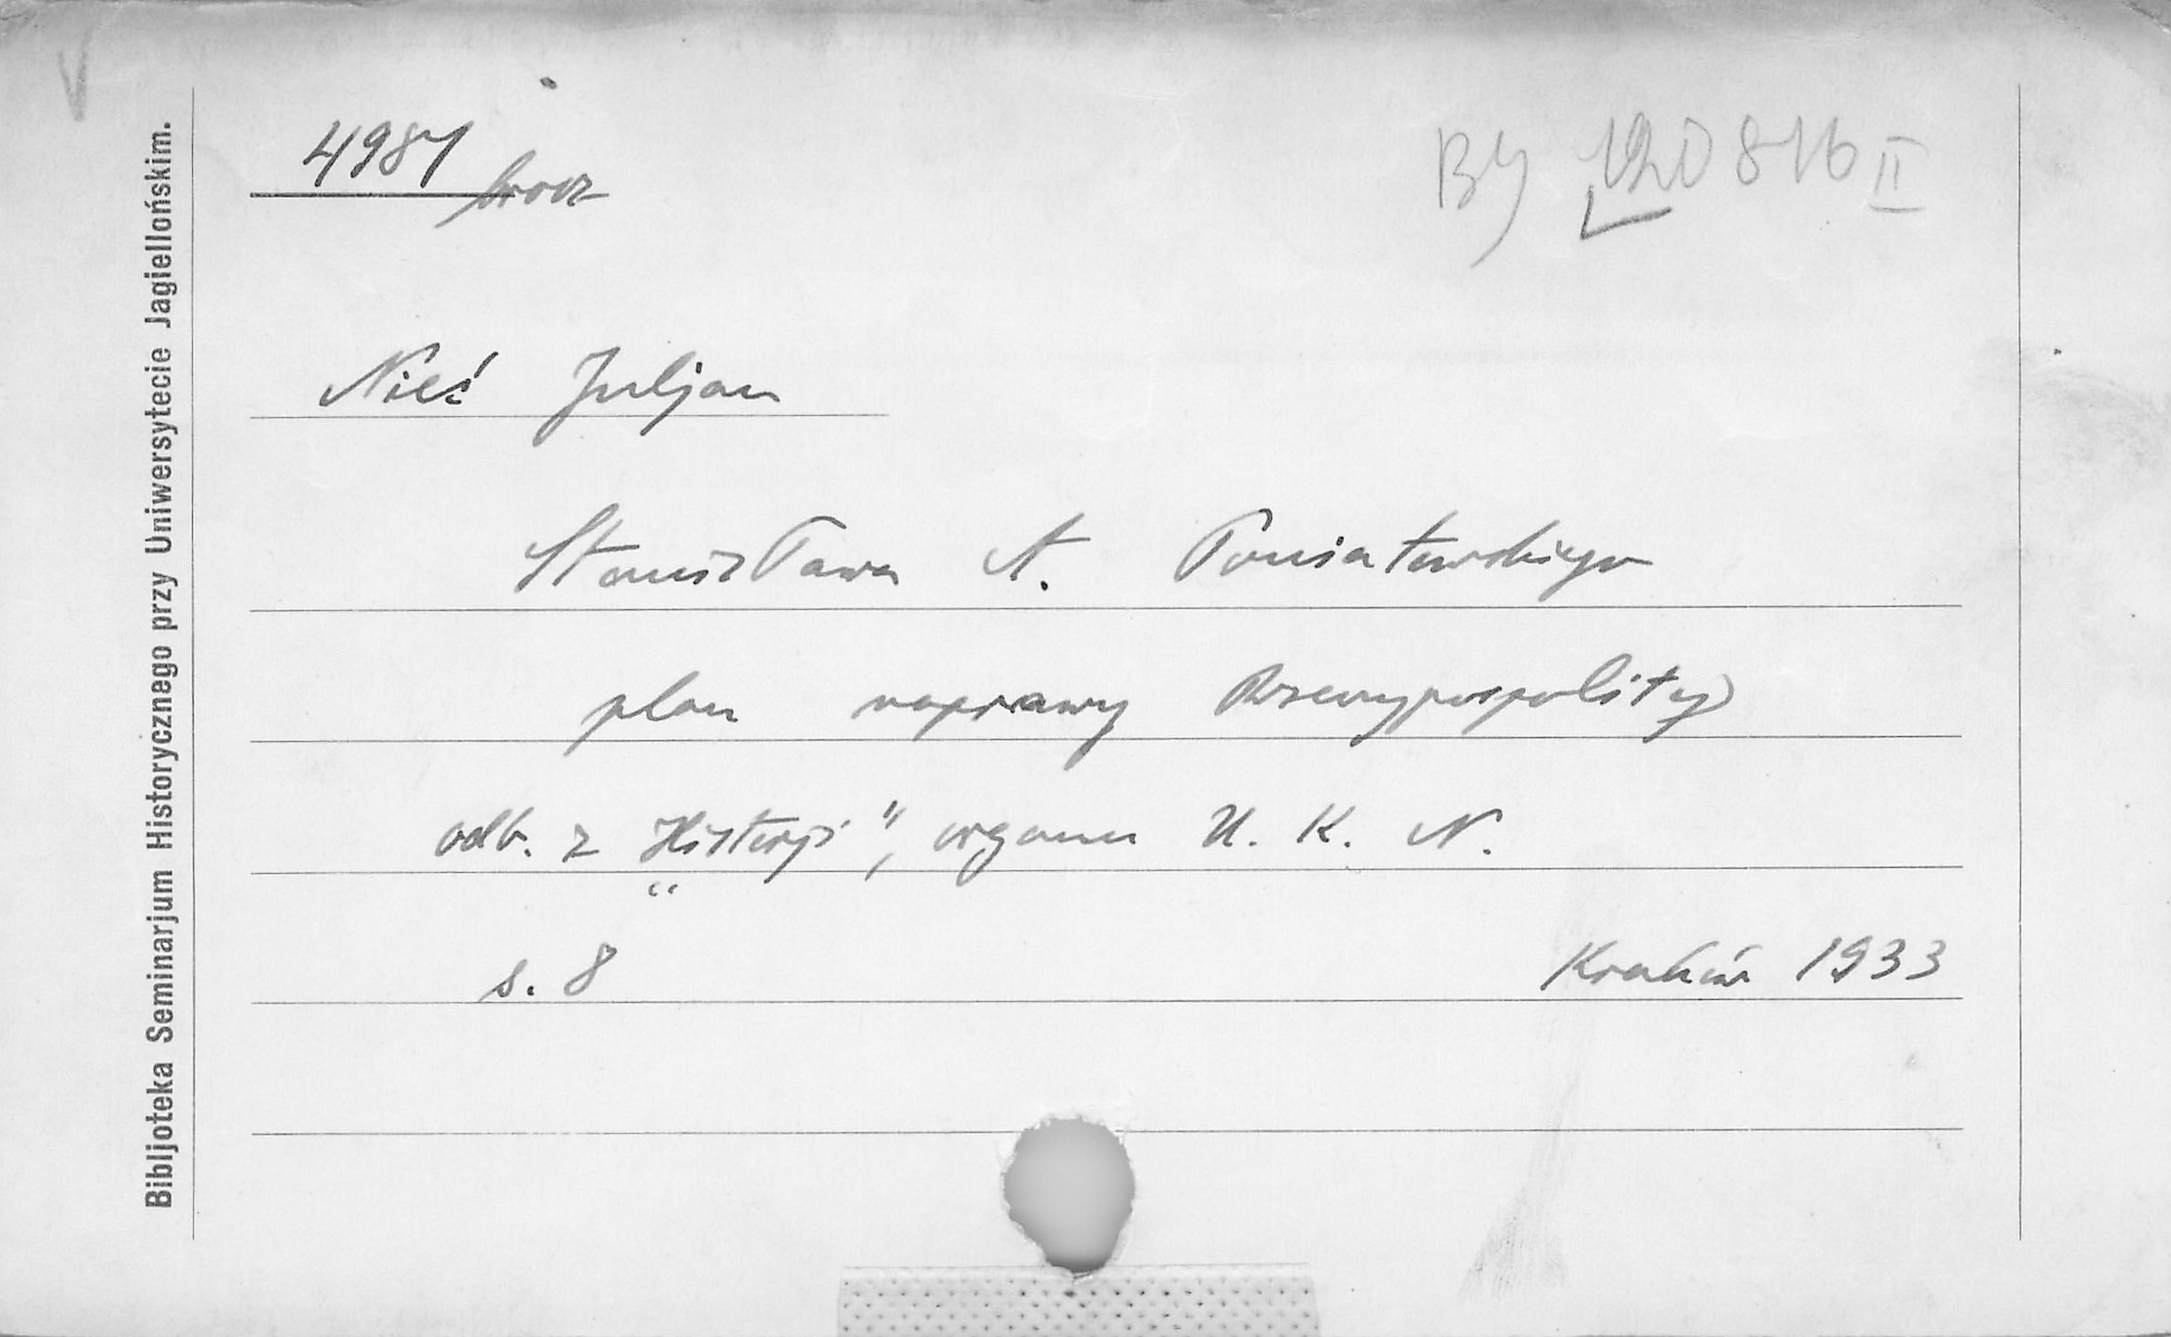 Bibljoteka Seminarjum Historycznego przy Uniwersytecie Jagiellońskim.
4981 brosz
BJ 120816 II
Nieć Juljan
Stanisława A. Poniatowskiego
plan naprawy Rzeczypospolitej
odb. z „Historji”, organu U. K. N.
s. 8 Kraków 1933